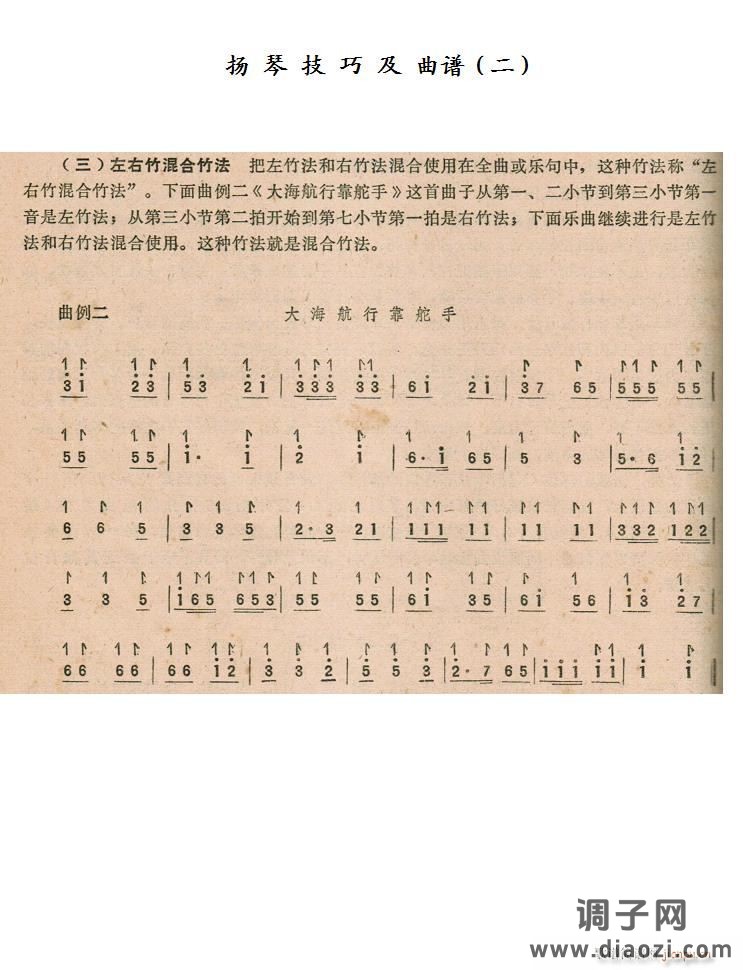 扬 琴 技 巧 及 曲谱(二)
（三）左右竹混合竹法 把左竹法和右竹法混合使用在全曲或乐句中，这种竹法称“左
右竹混合竹法”。下面曲例二《大海航行靠舵手》这首曲子从第一、二小节到第三小节第一
音是左竹法；从第三小节第二拍开始到第七小节第一拍是右竹法；下面乐曲继续进行是左竹
法和右竹法混合使用。这种竹法就是混合竹法。
曲例二 大海航行靠舵手
3i 23 | 53 2i | 333 33 | 6i 2i | 37 65 | 555 55 |
55 55 | i· i | 2 i | 6·i 65 | 5 3 | 5·6 i2 |
6 6 5 | 3 3 5 | 2·3 21 | 111 11 | 11 11 | 332 122 |
3 3 5 | i65 653 | 55 55 | 6i 35 | 6i 56 | i3 27 |
66 66 | 66 i2 | 3 3 2 | 5 5 3 | 2·7 65 | iii ii | i i |
调子网
www.diaozi.com